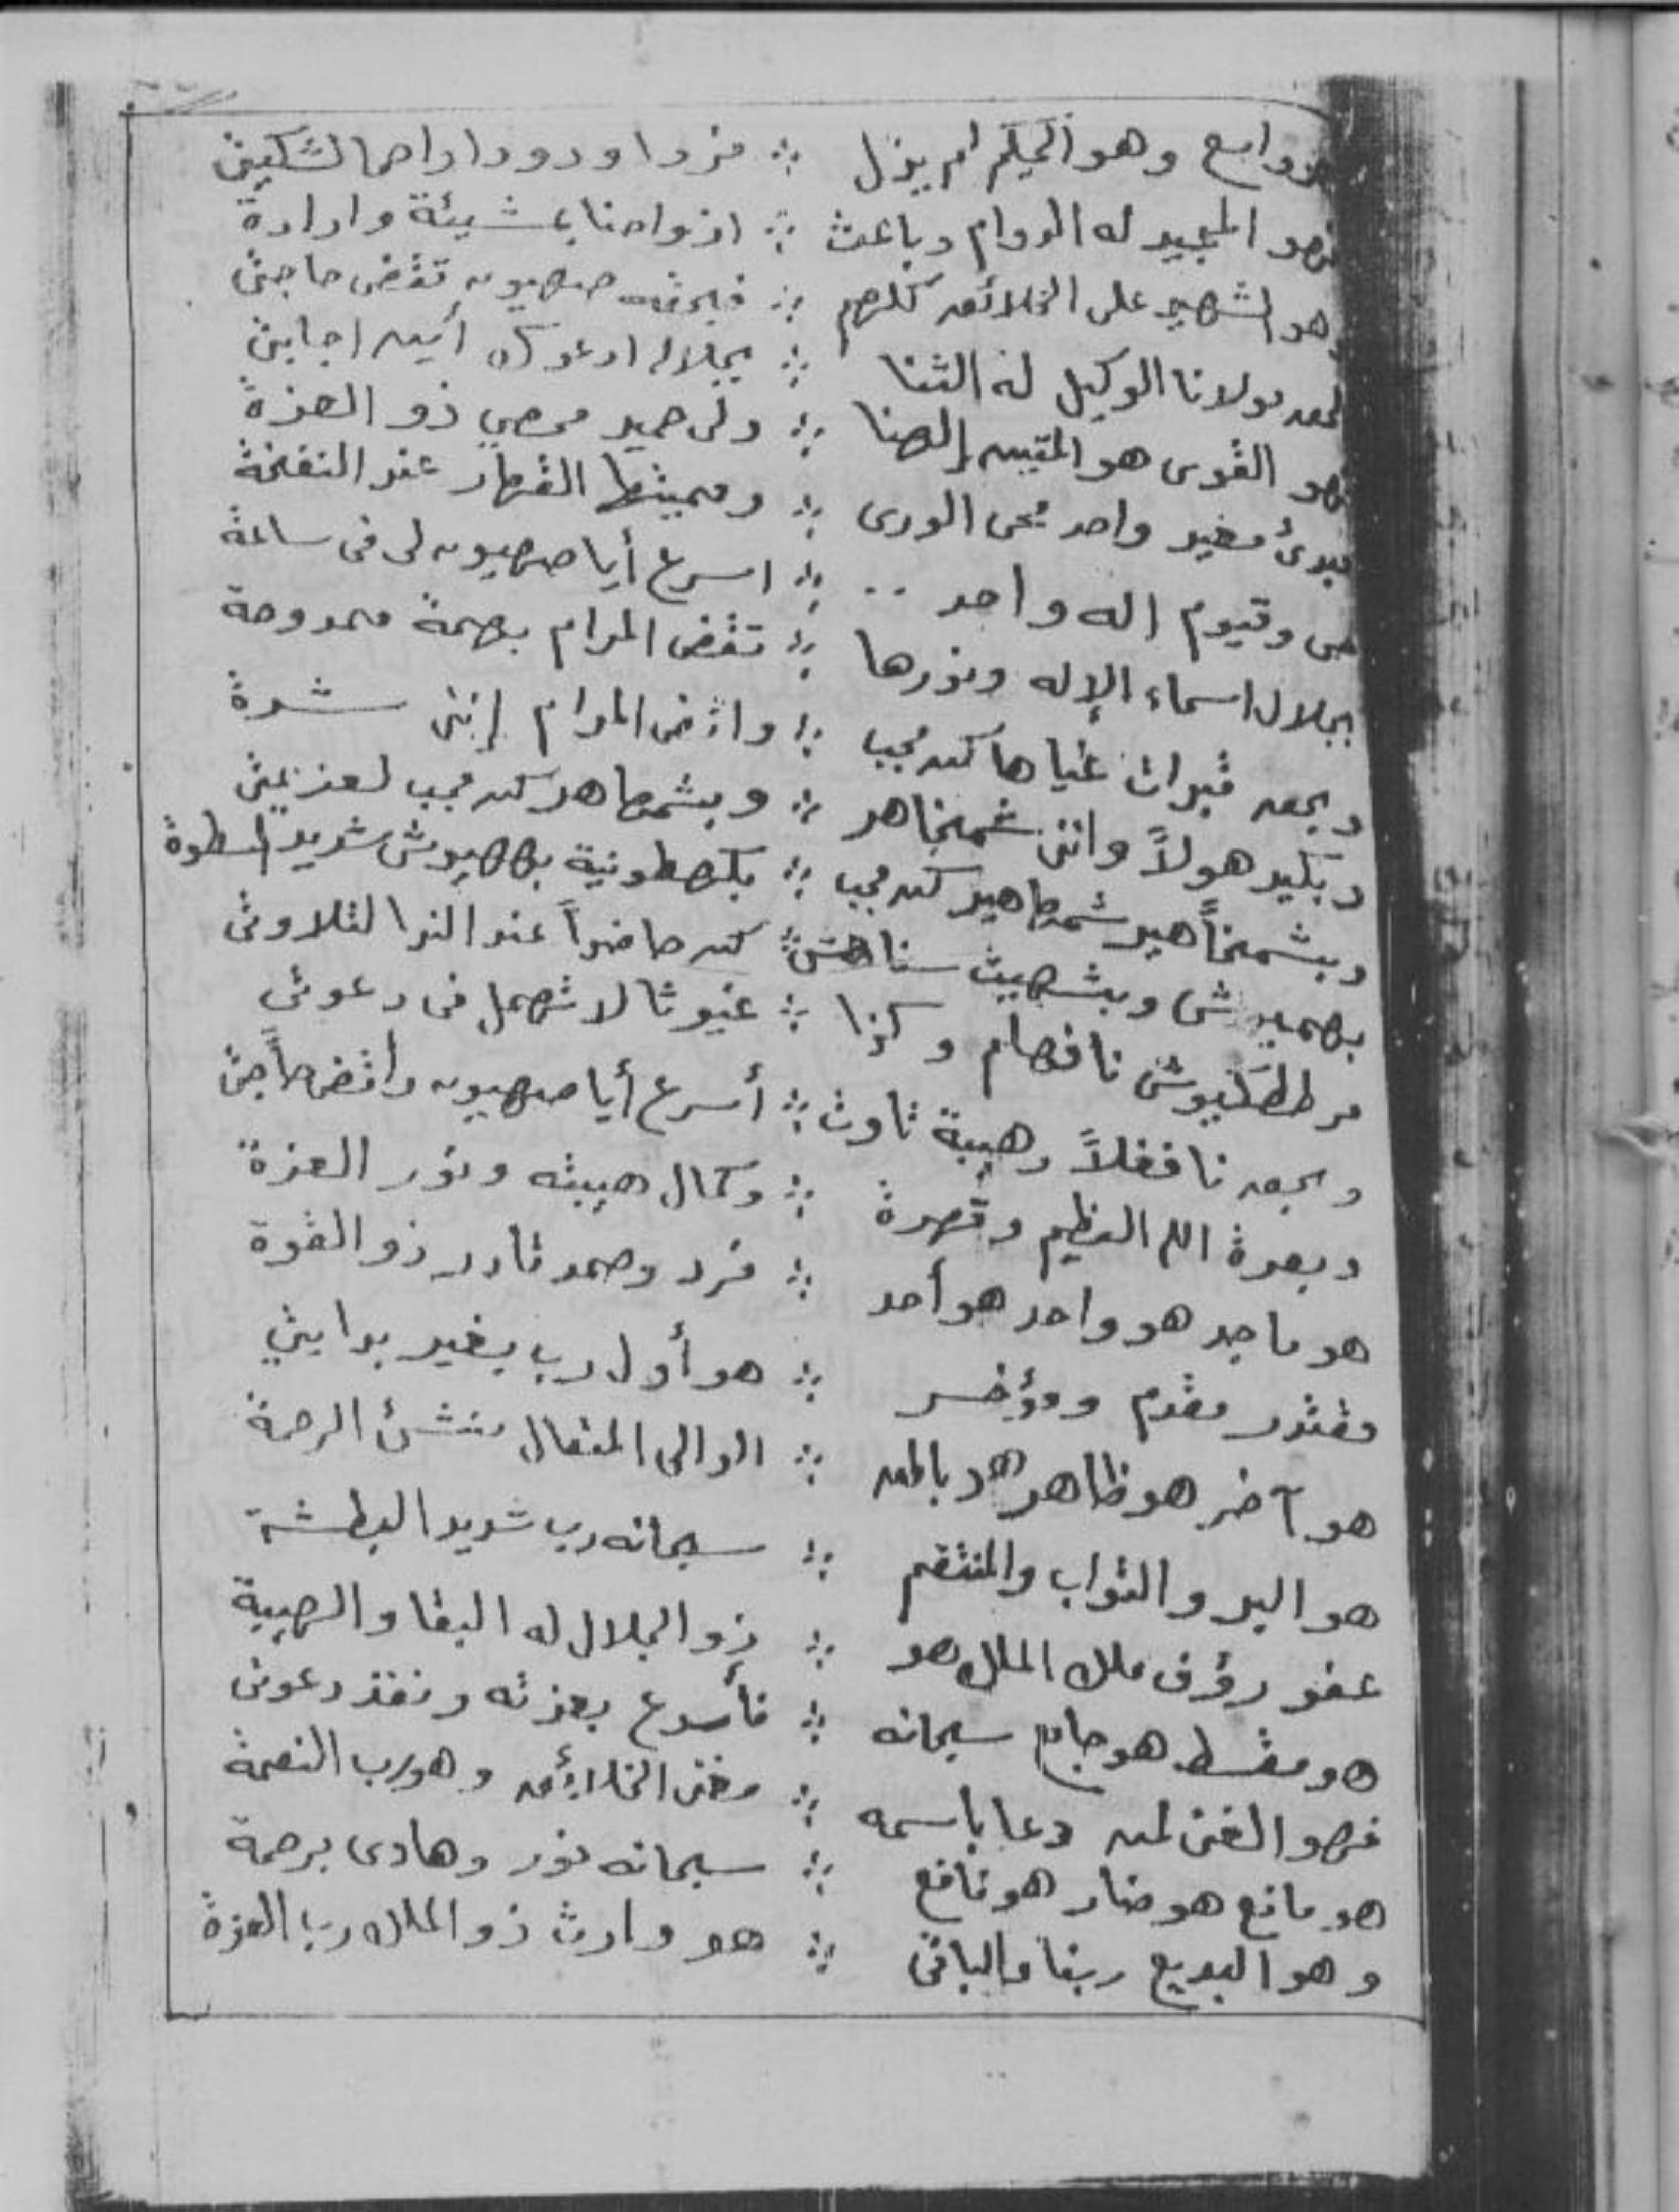 واسع وهو الحكيم لم يزل ∴ فردا ودودا راحما لشكيتى
فهو المجيد له الدوام وباعث ∴ ارواحنا بمشيئة وارادة
وهو الشهيد على الخلائق كلهم ∴ صهيون تقضى حاجتى
مولانا الوكيل له الثنا ∴ بجلاله ادعوك أين اجابتى
فهو القوى هو المتين إلهنا ∴ ولى حميد محصي ذو العزة
مبدئ معيد واحد يحى الورى ∴ ومميتها القهار عند النفخة
حى وقيوم اله واحد .. ∴ اسرع أيا صهيون لى فى ساعة
بجلال اسماء الإله ونورها ∴ تقضى المرام بهمة ممدوحة
وبحق قبرات غياها كن مجب ∴ واقض المرام إننى شدة
وبكيد هولاً واننى شمخاهر ∴ وبشمهاهر كن مجب لعزيمتى
وبشمخاً هير شمهاهير كن مجب ∴ بكهطهونية شديد السطوة
وبشهيث ∴ كن حاضراً عند الندا لتلاوتى
نافهام وكذا ∴ غيوثا لا تهمل فى دعوتى
وبحق نافغلاً وهيبة ثاوث ∴ أسرع أيا صهيون واقض حاجتى
وبعزة الله العظيم وقهرة ∴ وكمال هيبته ونور العزة
هو ماجد هو واحد هو أحد ∴ فرد وصمد قادر ذو القوة
مقتدر مقدم ومؤخر ∴ هو أول رب بغير بدايتي
هو آخر هو ظاهر هو باطن ∴ الوالى المتعال منشئ الرحمة
هو البر والتواب والمنتقم ∴ سبحانه رب شديد البطشة
عفو رؤف ملك الملك هو ∴ ذو الجلال له البقا والهيبة
هو مقسط هو جامع سبحانه ∴ فأسرع بعزته ونفذ دعوتى
فهو الغنى لمن دعا باسمه ∴ مغنى الخلائق وهو رب النعمة
هو مانع هو ضار هو نافع ∴ سبحانه نور وهادى برحمة
وهو البديع ربنا والباقى ∴ هو وارث ذو الملك رب العزة